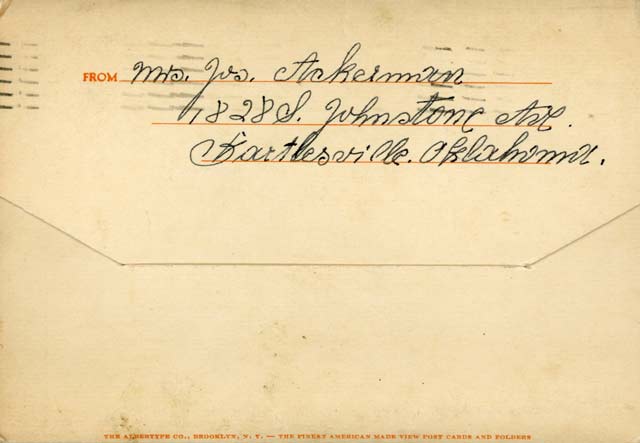 FROM Mrs. Jos. Ackerman
1828 S. Johnstone Av.
Bartlesville. Oklahoma.
THE ALBERTYPE CO., BROOKLYN, N. Y. — THE FINEST AMERICAN MADE VIEW POST CARDS AND FOLDERS